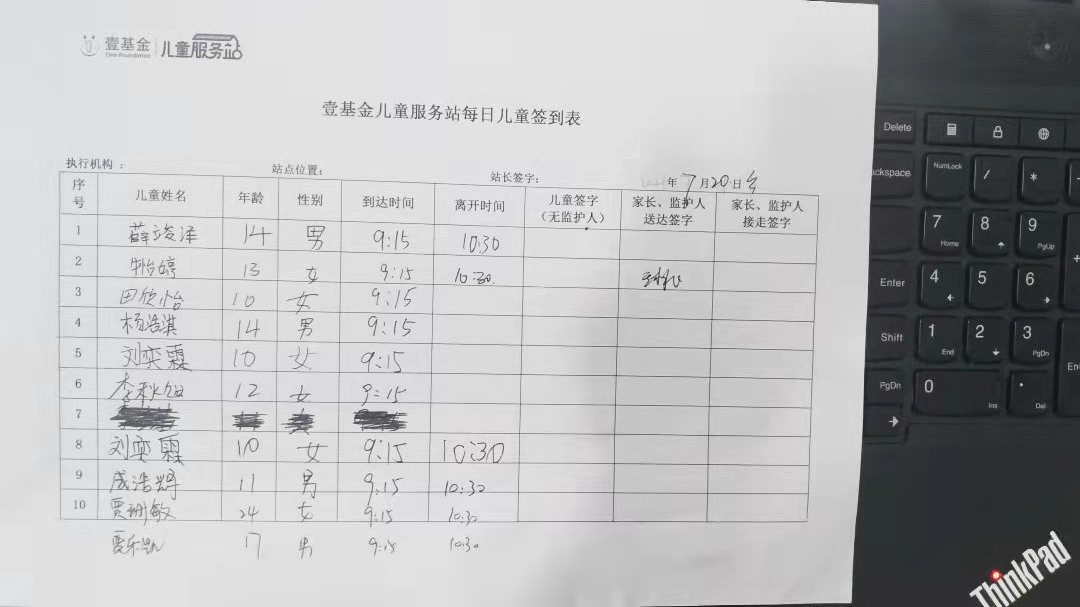 壹基金 儿童服务站
One Foundation
壹基金儿童服务站每日儿童签到表
执行机构: 站点位置: 站长签字: 年7月20日
序号 儿童姓名 年龄 性别 到达时间 离开时间 儿童签字(无监护人) 家长、监护人送达签字 家长、监护人接走签字
1 薛竣泽 14 男 9:15 10:30
2 牛怡婷 13 女 9:15 10:30
3 田欣怡 10 女 9:15
4 杨浩淇 14 男 9:15
5 刘奕霖 10 女 9:15
6 李秋 12 女 9:15
7
8 刘奕霖 10 女 9:15 10:30
9 成浩 11 男 9:15 10:30
10 贾珊敏 24 女 9:15 10:30
贾乐凯 17 男 9:15 10:30
Delete
Backspace NumLock / *
7 Home 8 9 PgUp +
Enter 4 5 6
Shift 1 End 2 3 PgDn
PgDn 0 Ins . Del
ThinkPad